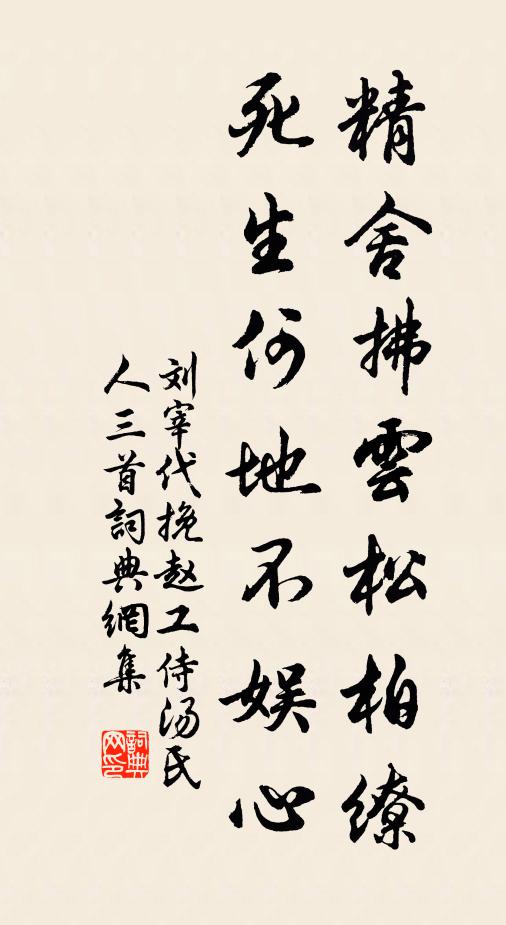 精舍拂雲松柏繚
死生何地不娱心
刘宰代挽赵工侍汤氏
人三首詞典網集
詞典
网印